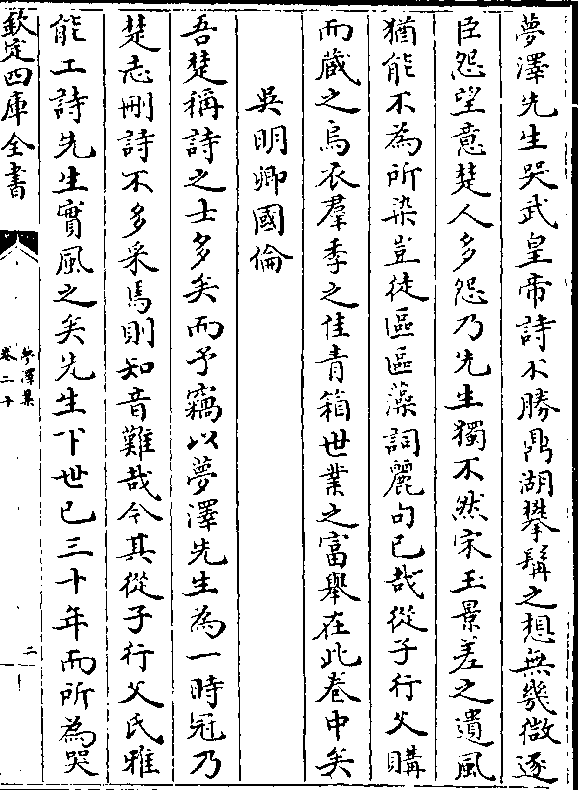 夢澤先生哭武皇帝詩不勝鼎湖攀髯之想無幾微逐
臣怨望意楚人多怨乃先生獨不然宋玉景差之遺風
猶能不為所染豈徒區區藻詞麗句已哉從子行父購
而蔵之烏衣羣季之佳青箱世業之富舉在此卷中矣
吳明卿國倫
吾楚稱詩之士多矣而予竊以夢澤先生為一時冠乃
楚志刪詩不多采焉則知音難哉今其從子行父氏雅
能工詩先生實風之矣先生下世已三十年而所為哭
欽定四庫全書
夢澤集
卷二十
二